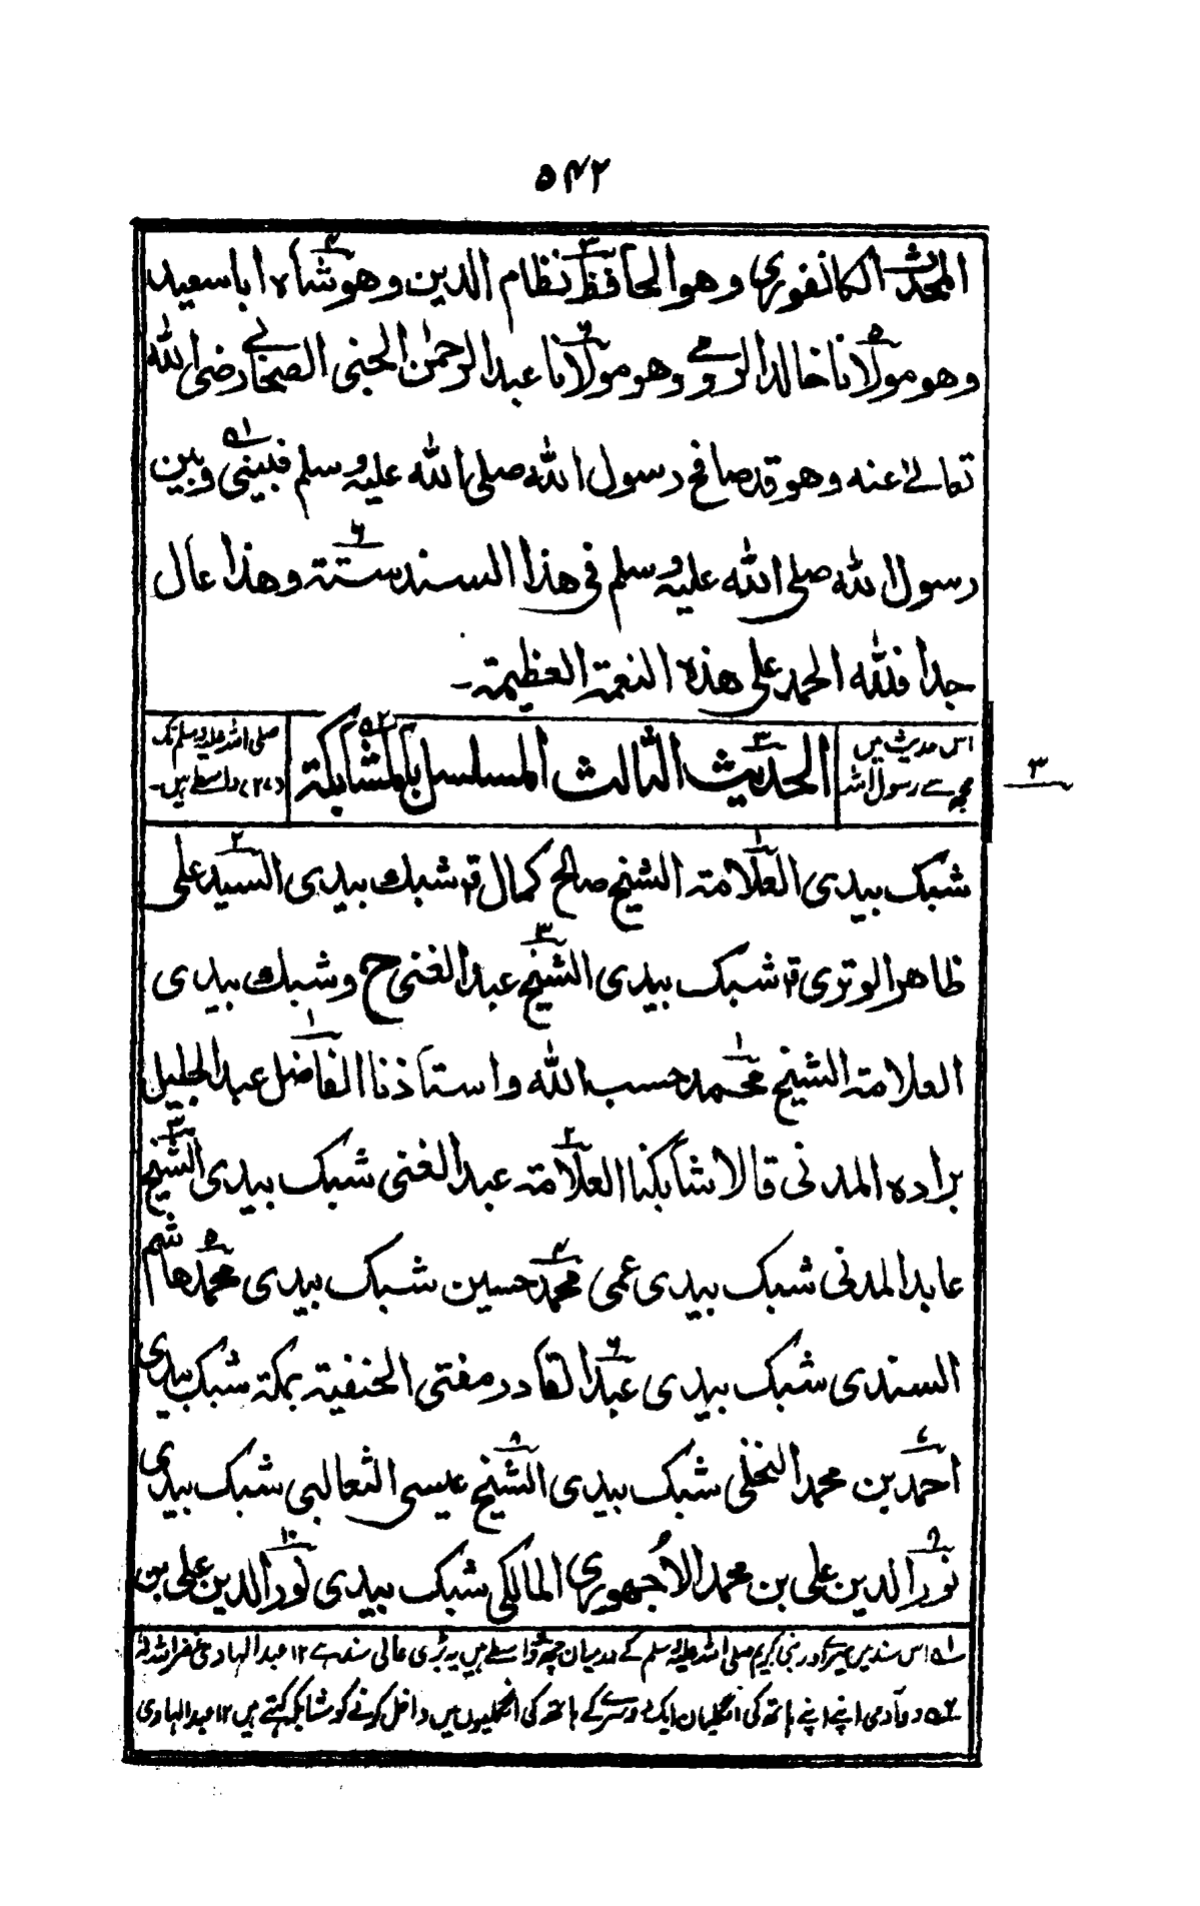 ۵۴۲
المحدث الكانفوری وهو الحافظ نظام الدین وهو شاه ابا سعید
وهو مولانا خالد الرومی وهو مولانا عبد الرحمٰن الجنی الصحابی رضی الله
تعالےٰ عنه وهو قد صافح رسول الله صلی الله علیه وسلم فبینی وبین
رسول الله صلی الله علیه وسلم فی هذا السند ستة وهذا عال
جدا فلله الحمد علی هذه النعمة العظیمة۔
اس حدیث میں
مجھ سے رسول اللہ
الحدیث الثالث المسلسل بالمشابكة
صلی اللہ علیہ وسلم تک
(۲۷) واسطے ہیں۔
۳
شبك بیدی العلامة الشیخ صالح كمال قَ شبك بیدی السید علی
ظاهر الوتری قَ شبك بیدی الشیخ عبد الغنی ح وشبك بیدی
العلامة الشیخ محمد حسب الله واستاذنا الفاضل عبد الجلیل
براده المدنی قالا شابكنا العلامة عبد الغنی شبك بیدی الشیخ
عابد المدنی شبك بیدی عمی محمد حسین شبك بیدی محمد هاشم
السندی شبك بیدی عبد القادر مفتی الحنفیة بمكة شبك بیدی
احمد بن محمد النخلی شبك بیدی الشیخ عیسی الثعالبی شبك بیدی
نور الدین علی بن محمد الاُجهوری المالكی شبك بیدی نور الدین علی بن
۱ اس سند میں میرے اور نبی کریم صلی اللہ علیہ وسلم کے درمیان چھ واسطے ہیں یہ بڑی عالی سند ہے ۱۲ عبد الہادی غفر اللہ لہ
۲ دو آدمی اپنے اپنے ہاتھ کی انگلیاں ایک دوسرے کے ہاتھ کی انگلیوں میں داخل کرنے کو مشابکہ کہتے ہیں ۱۲ عبد الہادی